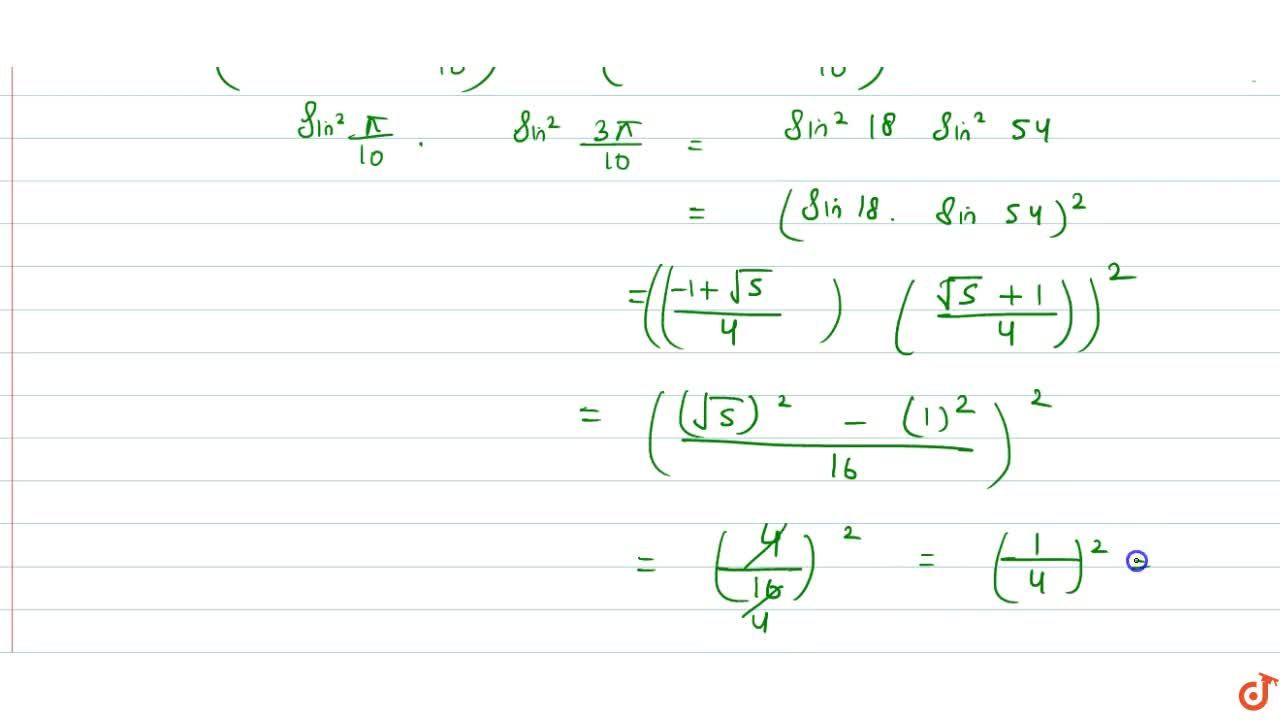 ( 10 ) ( 10 )
Sin² π/10 . Sin² 3π/10 = Sin² 18 Sin² 54
= (Sin 18 . Sin 54)²
= ((-1+√5 / 4) (√5 + 1 / 4))²
= ((√5)² - (1)² / 16)²
= (4 / 16 4)² = (1/4)² =